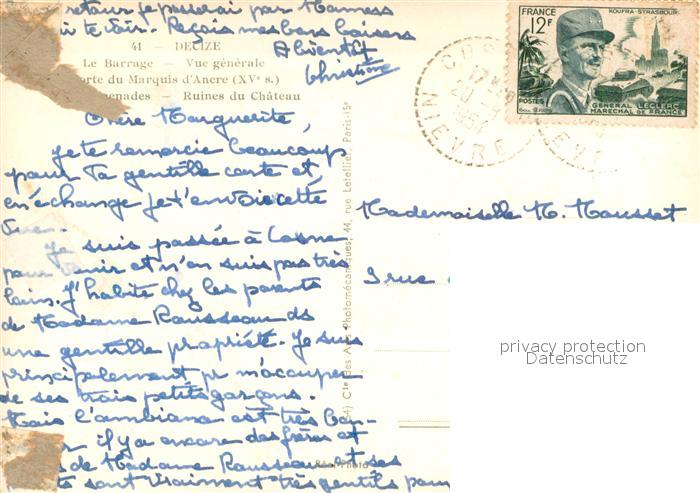 retour je passerai par
te voir. Reçois mes bons baisers
A bientôt
Christiane
41 - DECIZE
Le Barrage - Vue générale
Porte du Marquis d'Ancre (XVe s.)
Promenades - Ruines du Château
Chère Marguerite,
Je te remercie beaucoup
pour ta gentille carte et,
en échange je t'envoie cette
vue.
Je suis passée à Cosne
pour venir et n'en suis pas très
loin. J'habite chez les parents
de Madame Rousseau ds
une gentille propriété. Je suis
principalement pr m'occuper
de ses trois petits garçons.
Mais l'ambiance est très
il y a encore des frères et
de Madame Rousseau et ses
sont vraiment très gentils pour
Cie des Arts Photomécaniques, 44, rue Letellier, Paris-15e
Réel-Photo
FRANCE
KOUFRA-STRASBOURG
12F
POSTES
GÉNÉRAL LECLERC
MARÉCHAL DE FRANCE
NIÈVRE
Mademoiselle M. Mousset
3 rue
privacy protection
Datenschutz